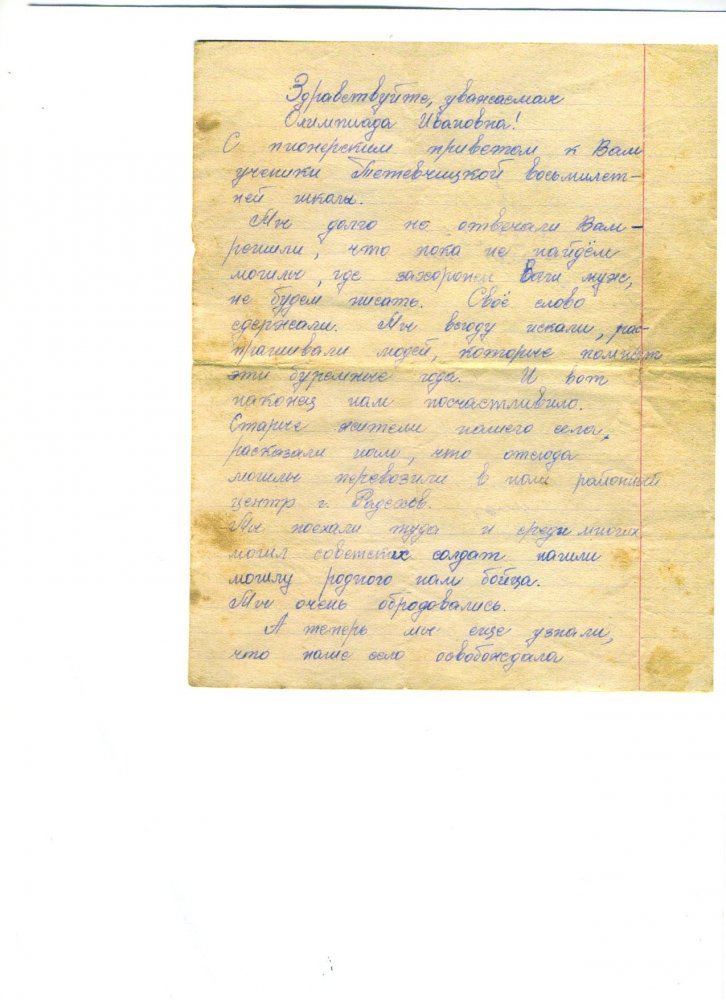 Здравствуйте, уважаемая
Олимпиада Ивановна!
С пионерским приветом к Вам
ученики Тетевчицкой восьмилет-
ней школы.
Мы долго не отвечали Вам –
решили, что пока не найдём
могилы, где захоронен Ваш муж,
не будем писать. Своё слово
сдержали. Мы всюду искали, рас-
прашивали людей, которые помнят
эти буремные года. И вот
наконец нам посчастливило.
Старые жители нашего села,
расказали нам, что отсюда
могилы перевозили в наш районный
центр г. Радехов.
Мы поехали туда и среди многих
могил советских солдат нашли
могилу родного нам бойца.
Мы очень обродовались.
А теперь мы еще узнали,
что наше село освобождала